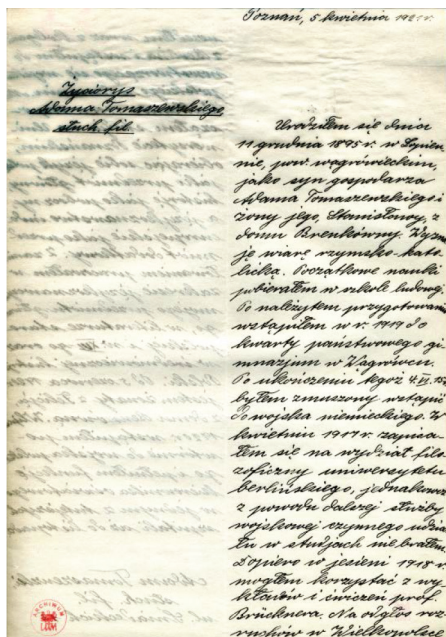 Poznań, 5 kwietnia 192
Życiorys
Adama Tomaszewskiego,
słuch. fil.
Urodziłem się dnia
11 grudnia 1895 r. w Łopien-
nie, pow. wągrowieckim,
jako syn gospodarza
Adama Tomaszewskiego i
żony jego, Stanisławy, z
domu Brenkówny. Wyzna-
ję wiarę rzymsko-kato-
licką. Początkowe nauki
pobierałem w szkole ludowej.
Po należytem przygotowaniu
wstąpiłem w r. do
kwarty państwowego gi-
mnazjum w Wągrowcu.
Po ukończeniu tegoż 4. VI. 15
byłem zmuszony wstąpić
do wojska niemieckiego. W
kwietniu 1917 r. zapisa-
łem się na wydział filo-
zoficzny uniwersytetu
berlińskiego, jednakowoż
z powodu dalszej służby
wojskowej czynnego udzia-
łu w studjach nie brałem.
Dopiero w jesieni 1918 r.
mogłem korzystać z wy-
kładów i ćwiczeń prof.
Brücknera. Na odgłos roz-
ruchów w Wielkopolsce
ARCHIWUM
UAM